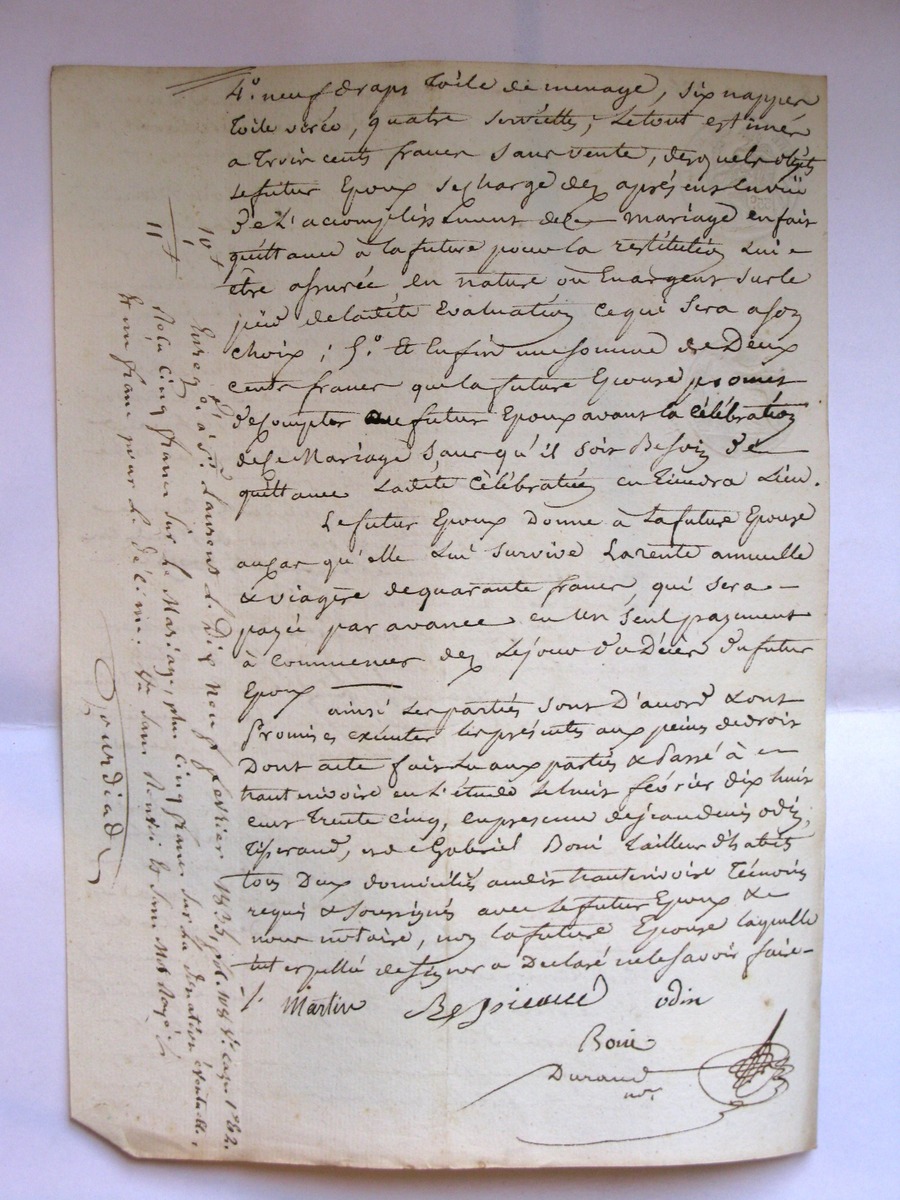 4° neuf draps toile de menage, six nappes
toile idéo, quatre serviettes; le tout estimés
a trois cents francs sans vente, desquels objets
le futur Epoux se charge dez aprésent en vüe
de l'acomplissement dece mariage en fait
quittance à la future pour la restitution lui
être assurée en nature ou en argent sur le
pied de ladite Evaluation ce qui sera a son
choix; 5° Et enfin une somme de Deux
cents francs que la future Epouse promet
de compter au futur Epoux avant la célébration
de ce Mariage sans qu'il soit Besoin de
quittance Ladite célébration en tiendra Lieu.
Le futur Epoux Donne à La future Epouse
au cas qu'elle Lui survive La rente annuelle
& viagère de quarante francs, qui sera
payée par avance en un seul payement
à commencer dez Le jour du Décès du futur
Epoux
ainsi Les parties sont D'acord & ont
Promis exécuter les présentes aux peines de droit
Dont acte fait Lu aux parties & Passé à
hauterivoire en L'étude Le huit février dix huit
cent trente cinq, en presence de jean denis odin,
Tisserand, et de Gabriel Boni tailleur d'habits
tous Deux domiciliés audit hauterivoire témoins
requis & soussignés avec Le futur Epoux &
nous notaire, non la future Epouse laquelle
interpellée de signer a Déclaré ne le savoir faire
Martin odin
Boni
Durand
nore
10 f
1
11 f
Enreg. à St Laurent L. Dix neuf fevrier 1835, fol. 118 V° case 1 & 2.
Reçu cinq francs sur le Mariage, plus cinq francs sur la donation éventuelle,
Et un franc pour le décime.
Jourdiad